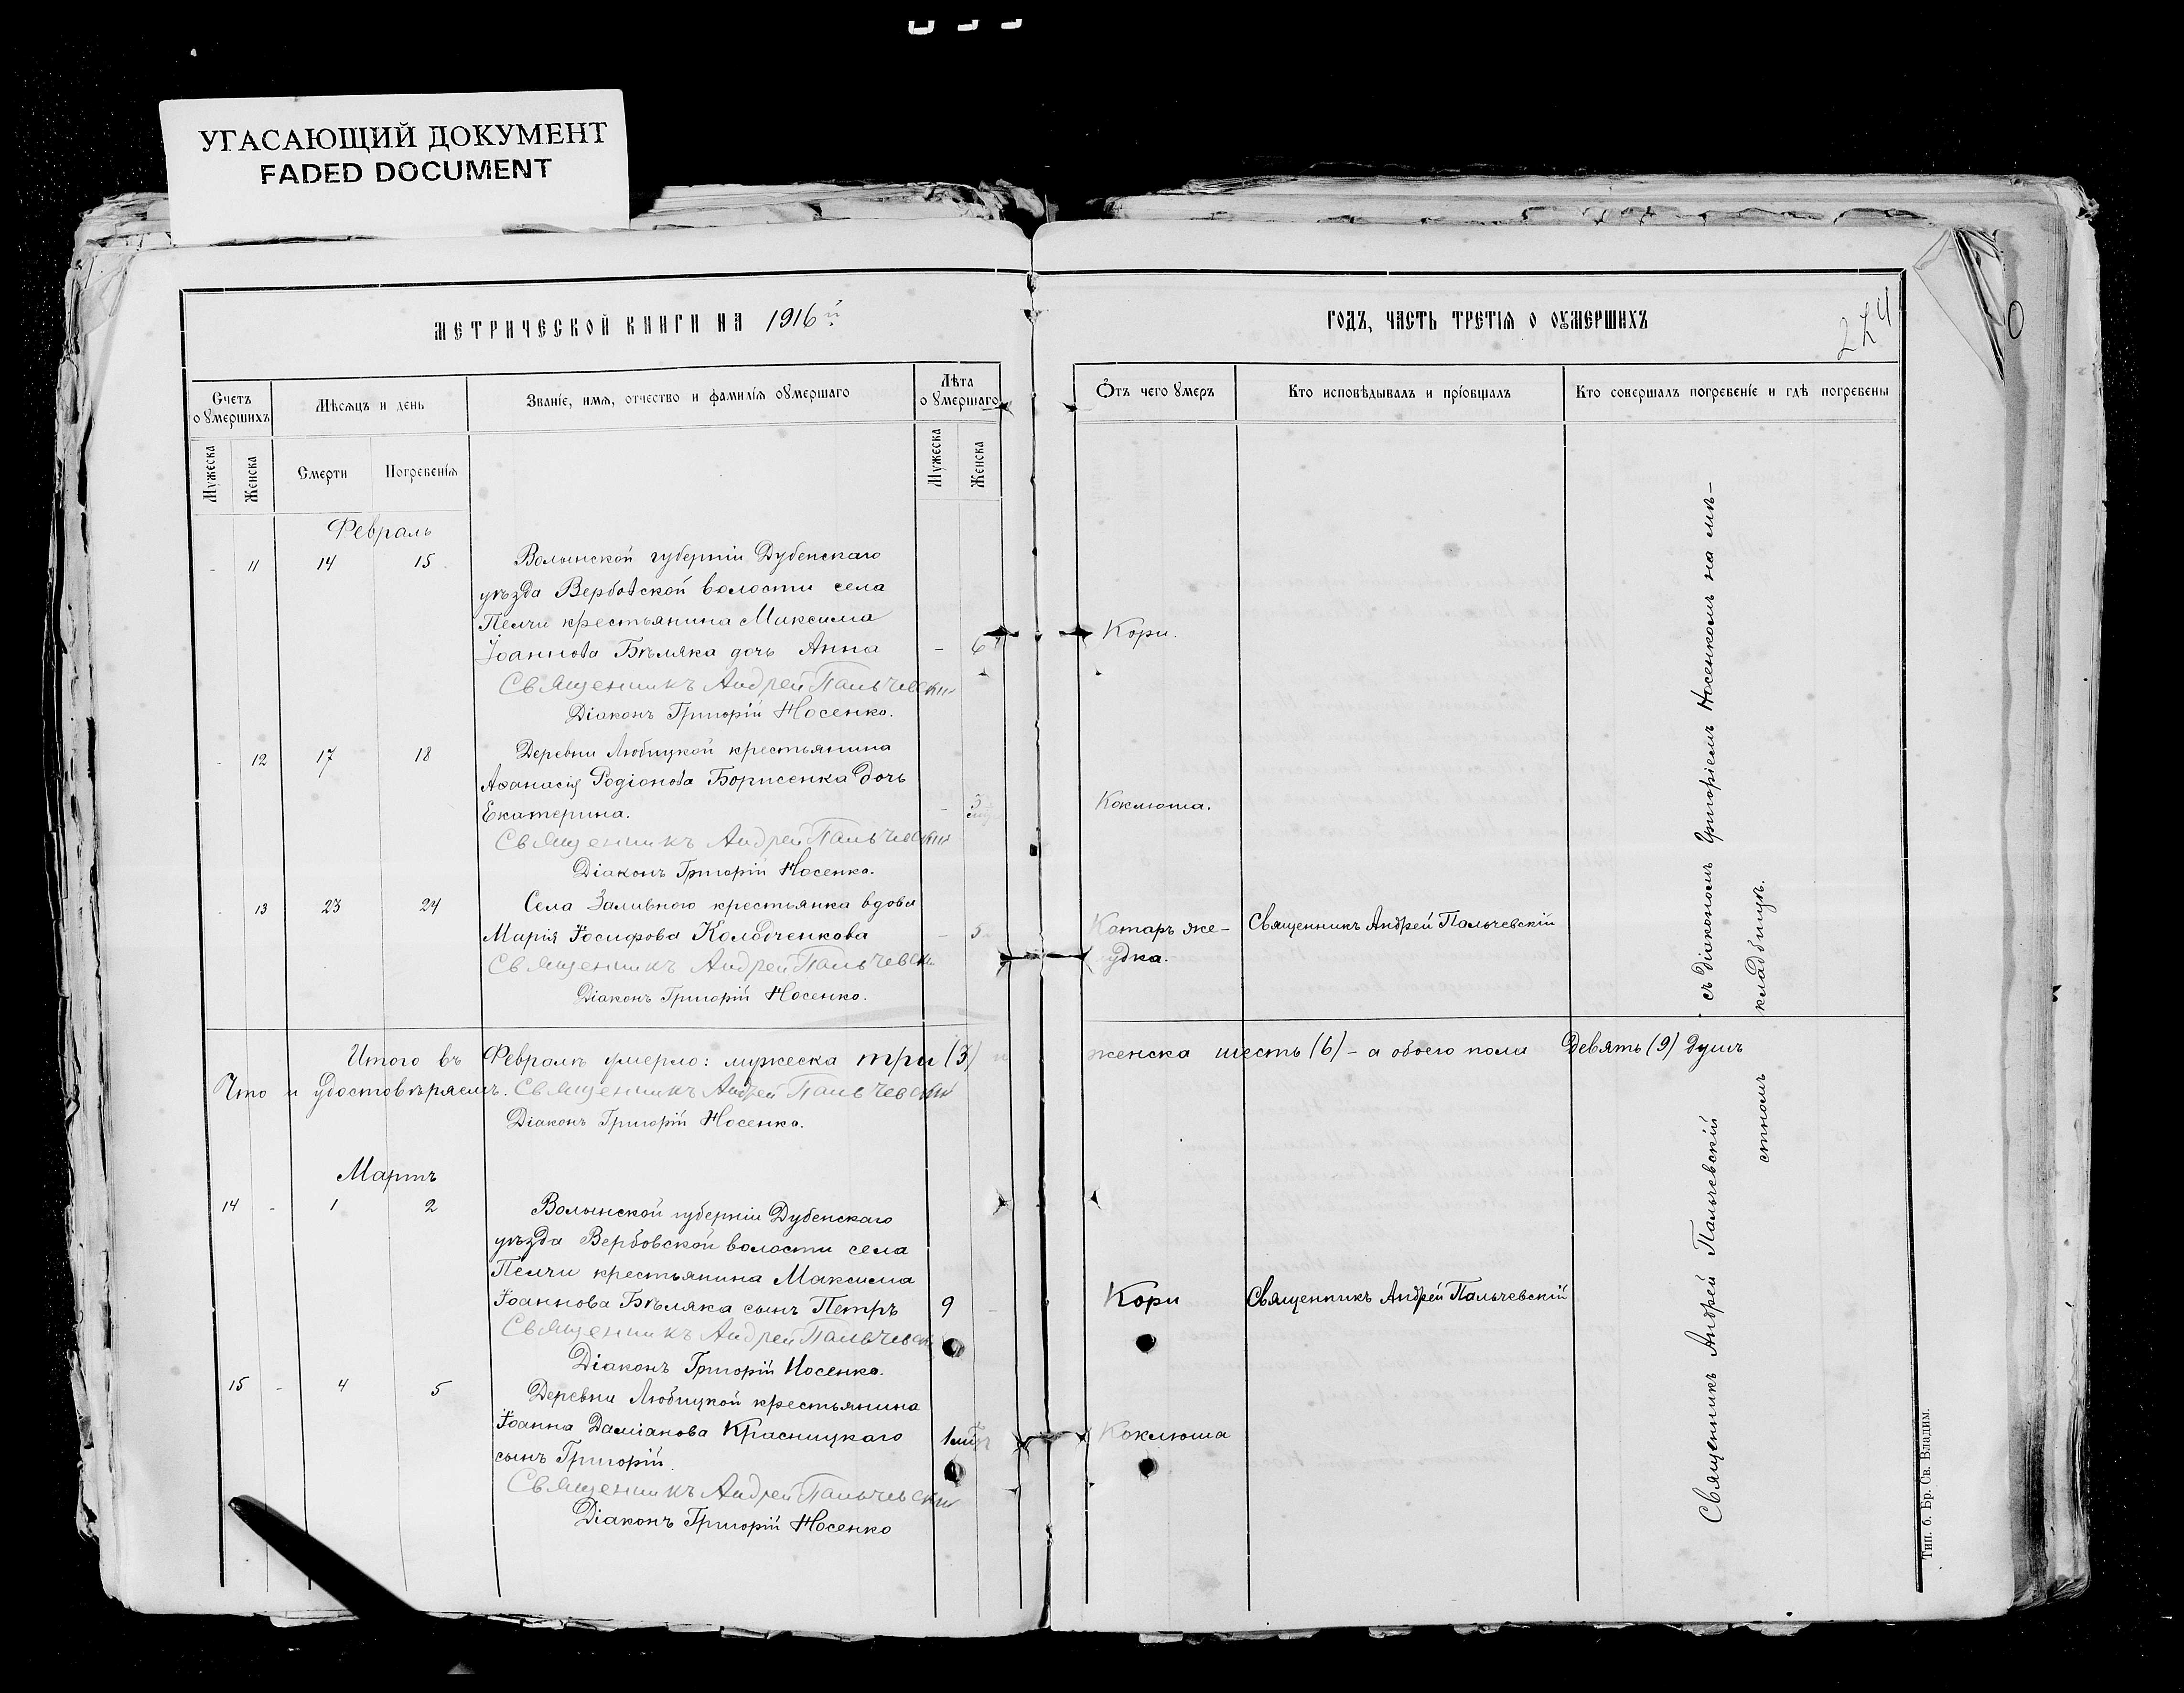 УГАСАЮЩИЙ ДОКУМЕНТ
FADED DOCUMENT
МЕТРИЧЕСКОЙ КНИГИ НА 1916й
Счетъ оумершихъ
Мѣсяцъ и день
Званіе, имя, отчество и фамилія оумершаго
Лѣта оумершаго
Мужеска
Женска
Смерти
Погребенія
Мужеска
Женска
Февраль
- 11 14 15 Волынской губерніи Дубенскаго
уѣзда Вербовской волости села
Пелчи крестьянина Максима
Іоаннова Бѣляка дочь Анна - 6
Священникъ Андрей Пальчевскій
Діаконъ Григорій Носенко.
- 12 17 18 Деревни Любицкой крестьянина
Аѳанасія Родіонова Борисенка дочь
Екатерина. -
Священникъ Андрей Пальчевскій
Діаконъ Григорій Носенко.
- 13 23 24 Села Заливного крестьянка вдова
Марія Іосифова Колодченкова -
Священникъ Андрей Пальчевскій
Діаконъ Григорій Носенко.
Итого въ Февралѣ умерло: мужеска три (3) и
Что и удостовѣряемъ. Священникъ Андрей Пальчевскій
Діаконъ Григорій Носенко.
Мартъ
14 - 1 2 Волынской губерніи Дубенскаго
уѣзда Вербовской волости села
Пелчи крестьянина Максима
Іоаннова Бѣляка сынъ Петръ 9 -
Священникъ Андрей Пальчевскій
Діаконъ Григорій Носенко.
15 - 4 5 Деревни Любицкой крестьянина
Іоанна Даміанова Красницкаго 1 мѣс
сынъ Григорій.
Священникъ Андрей Пальчевскій
Діаконъ Григорій Носенко
ГОДЪ, ЧАСТЬ ТРЕТІЯ О ОУМЕРШИХЪ
224
Отъ чего умеръ
Кто исповѣдывалъ и пріобщалъ
Кто совершалъ погребеніе и гдѣ погребены
Кори.
Коклюша.
Катаръ же-
удка.
Священникъ Андрей Пальчевскій
женска шесть (6) - а обоего пола девять (9) душъ
Кори
Священникъ Андрей Пальчевскій
Коклюша
Священникъ Андрей Пальчевскій съ діакономъ Григоріемъ Носенкомъ на мѣ-
стномъ кладбищѣ.
Тип. б. Бр. Св. Владим.